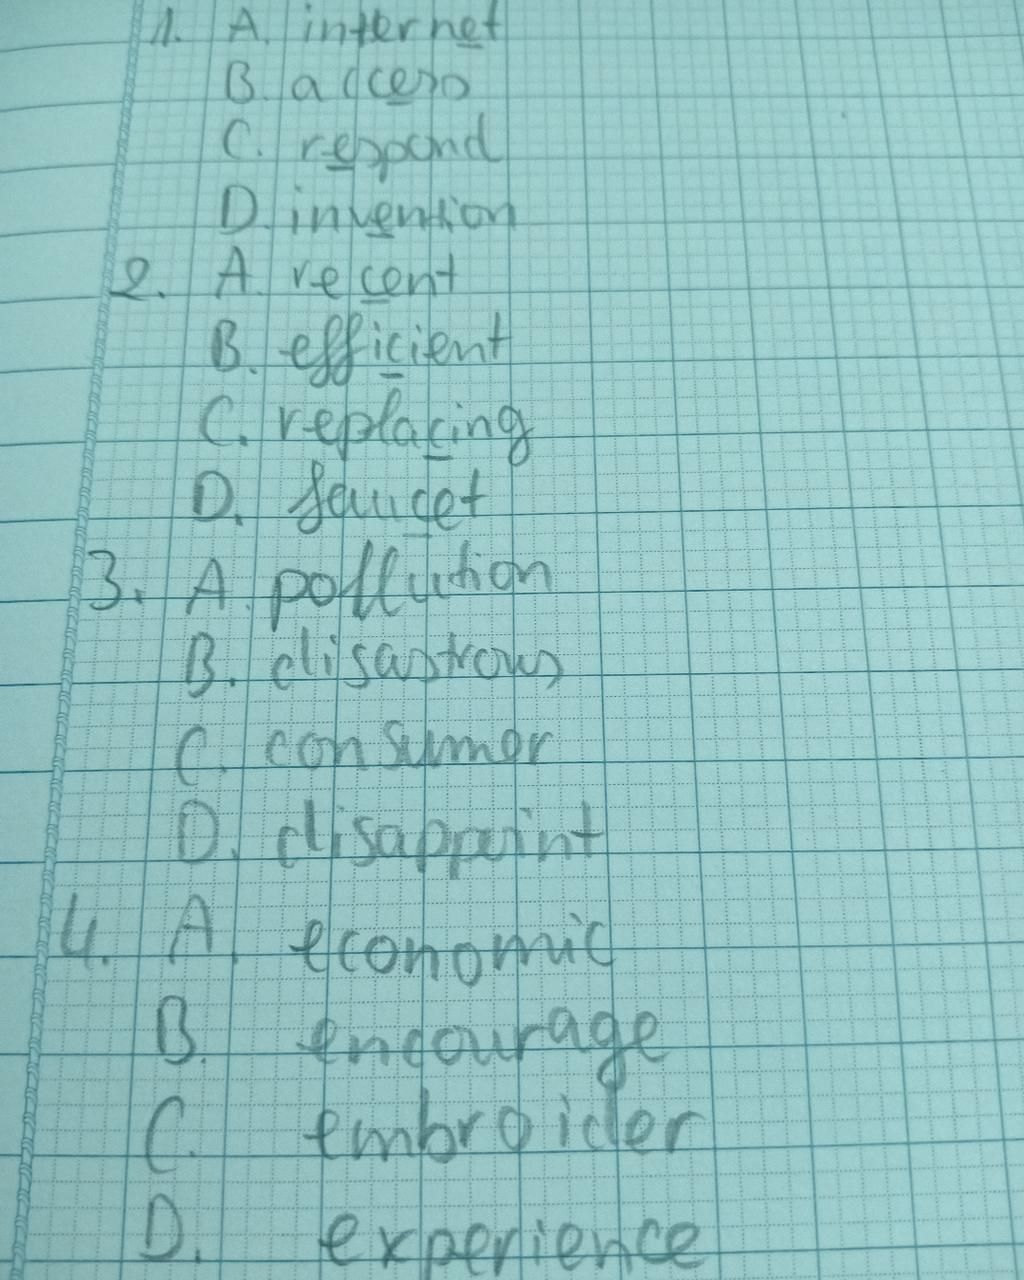 1. A. internet
B. access
C. respond
D. invention
2. A. recent
B. efficient
C. replacing
D. faucet
3. A. pollution
B. disastrous
C. consumer
D. disappoint
4. A. economic
B. encourage
C. embroider
D. experience